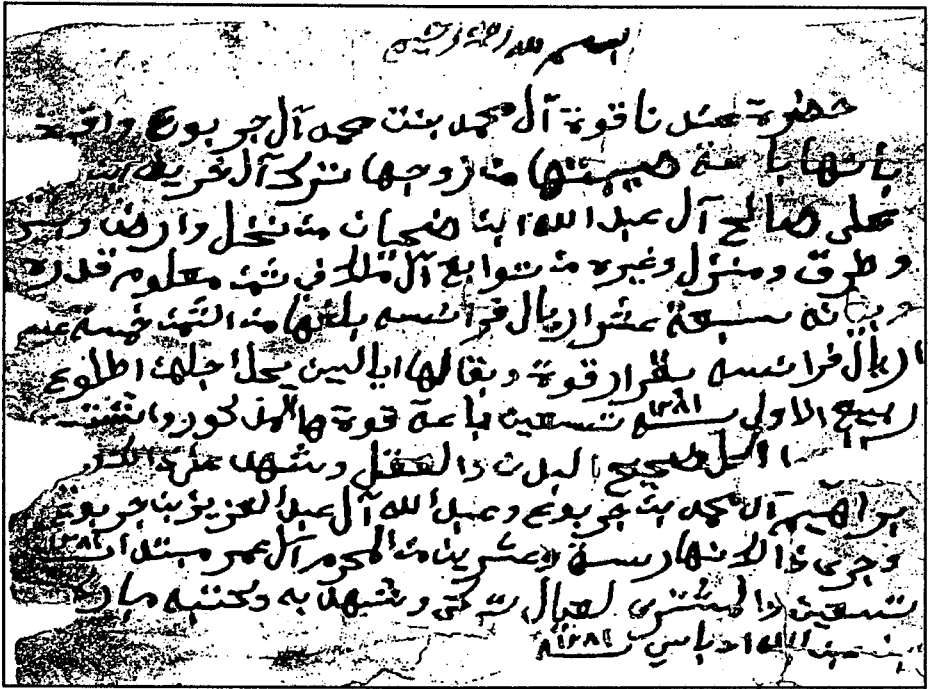 بسم الله الرحمن الرحيم
حضرة عندنا قوة آل محمد بنت محمد آل جربوع واقرة
بانها باعة صيبتها من زوجها تركي آل غريف ابن
على صالح آل عبدالله ابن ضحيان من نخل وارض وبير
وطرق ومنزل وغيره من توابع آل ملك في ثمن معلوم قدره
سبعة عشر اريال فرانسه بلغها من الثمن خمسة عشر
اريال فرانسه بقرار قوة وبقالها اريالين يحل اجلهن اطلوع
ربيع الاولى سنة ١٢٨١ تسعين باعة قوة هالمذكور وانتقت
الحل صحيح البدن والعقل وشهد على ذالك
براهيم آل محمد بن جربوع وعبدالله آل عبدالعزيز بن جربوع
وجرى ذالا نهار ستة وعشرين من المحرم آل عمر مبتدا سنة ١٢٨١
تسعين والمشترى لعيال تركي وشهد به وكتبه مبارك
ابن عبدالله ادباسي سنة ١٢٨١